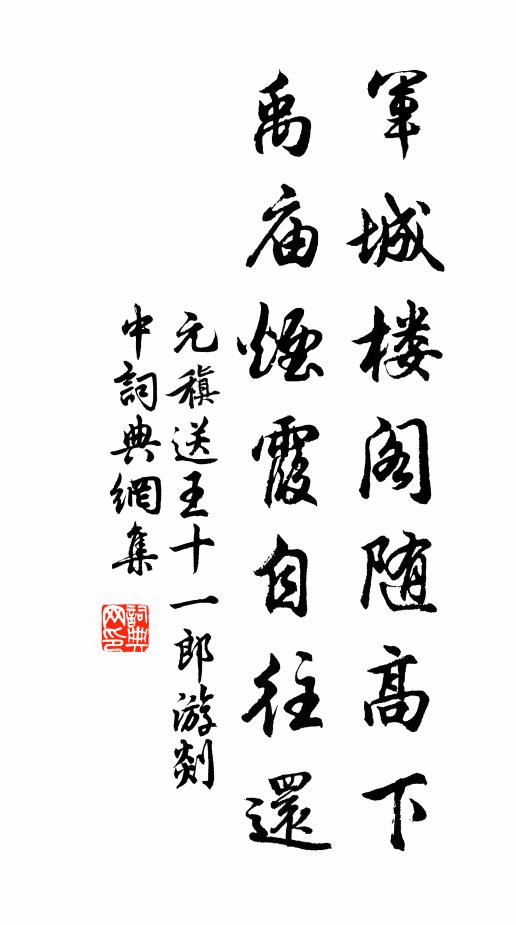 军城楼阁随高下
禹庙煙霞自往還
元稹送王十一郎游剡
中詞典網集
詞典
网印